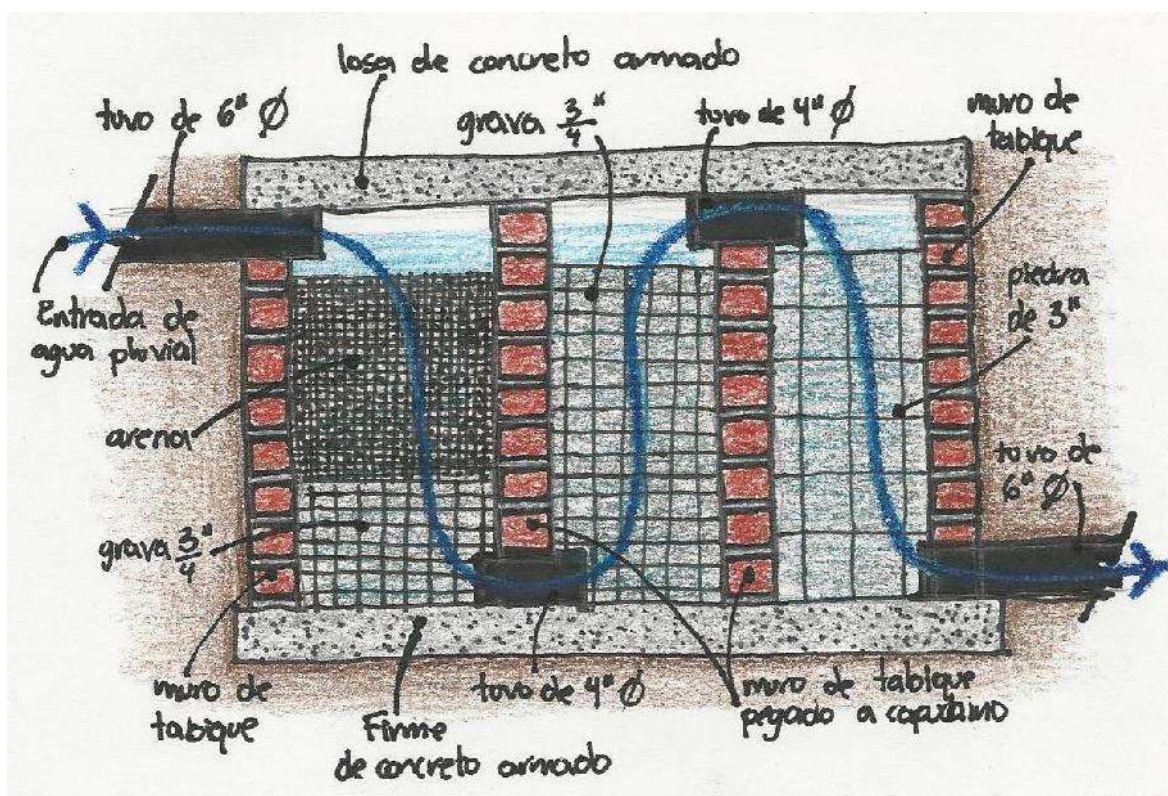 losa de concreto armado
tuvo de 6" Ø
grava 3/4"
tuvo de 4" Ø
muro de
tabique
Entrada de
agua pluvial
piedra
de 3"
arena
tuvo de
6" Ø
grava 3/4"
muro de
tabique
Firme
de concreto armado
tuvo de 4" Ø
muro de tabique
pegado a capuxino